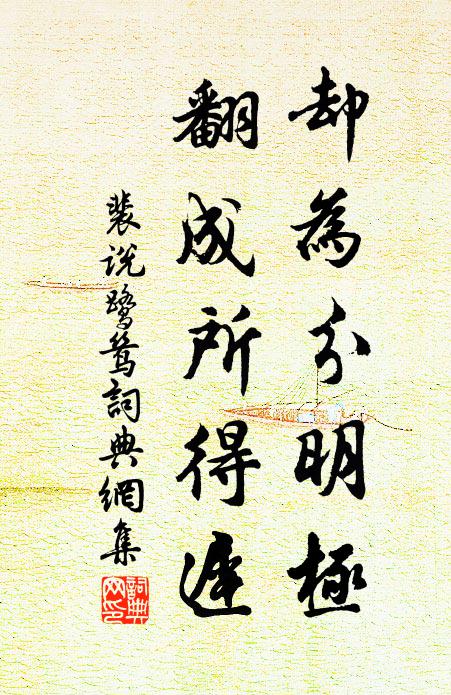 却為分明極
翻成所得遲
裴説鷺鷥詞典網集
詞典
网印